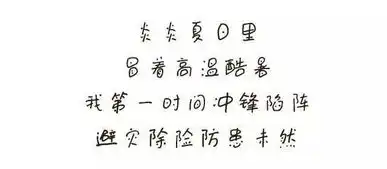 炎炎夏日里
冒着高温酷暑
我第一时间冲锋陷阵
避灾除险防患未然